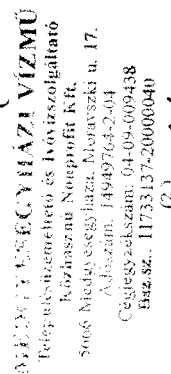 MEDGYESEGYHÁZI VÍZMŰ
Településüzemeltető és Ivóvízszolgáltató
Közhasznú Nonprofit Kft.
5666 Medgyesegyháza, Moravszki u. 17.
Adószám: 14949764-2-04
Cégjegyzékszám: 04-09-009438
Bsz.sz.: 11733137-20000040
(2.)